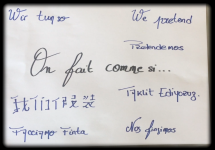 Wir tun so
We pretend
Pretendemos
On fait comme si...
Taklit Ediyoruz.
Facciamo Finta
Nos fingimos